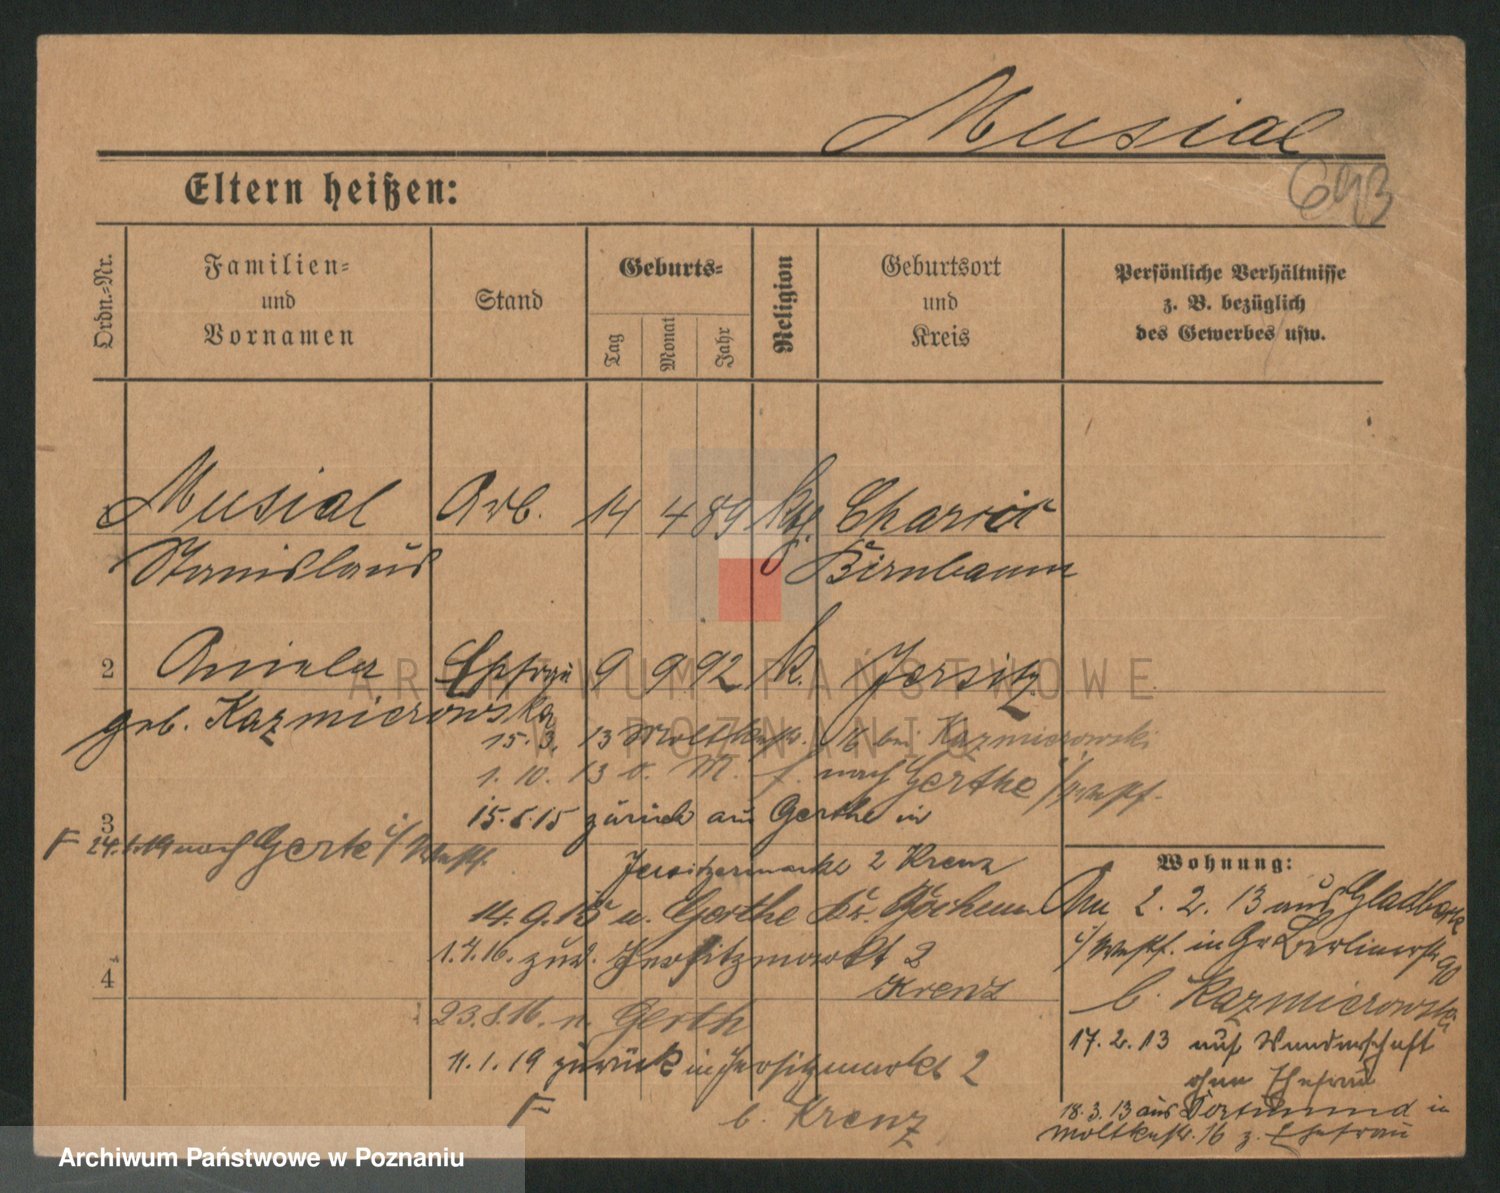 Musial
693
Eltern heißen:
Ordn.-Nr.
Familien-
und
Vornamen
Stand
Geburts-
Tag
Monat
Jahr
Religion
Geburtsort
und
Kreis
Persönliche Verhältnisse
z. B. bezüglich
des Gewerbes usw.
Musial Arb. 14 4 89 kth. Charcic
Stanislaus Birnbaum
2 Aniela Ehefrau 9 9 92 k. Jersitz
geb. Kazmierowska
15.3.13 Moltkestr. 16 bei Kazmierowski
1.10.13 v. M. f. nach Gerthe i/Westf.
3
15.5.15 zurück aus Gerthe in
F 24.1.19 nach Gerte i/Westf.
Jersitzermarkt 2 Krenz
14.9.15 n. Gerthe Kr. Bochum
1.4.16. zur. Jersitzmarkt 2
Krenz
4
23.8.16. n. Gerth
11.1.19 zurück in Jersitzmarkt 2
F b. Krenz
Wohnung:
Am 2.2.13 aus Gladbeck
i/Westf. in Gr Berlinerstr 90
b. Kazmierowska
17.2.13 auf Wanderschaft
ohne Ehefrau
18.3.13 aus Dortmund in
Moltkestr. 16 z. Ehefrau
ARCHIWUM PAŃSTWOWE
W POZNANIU
Archiwum Państwowe w Poznaniu